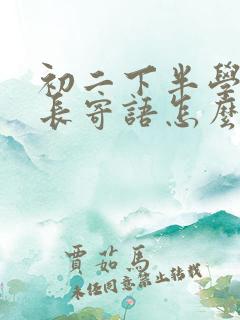 初二下半學
長寄語怎麼
賈茹馬
未经同意禁止转载